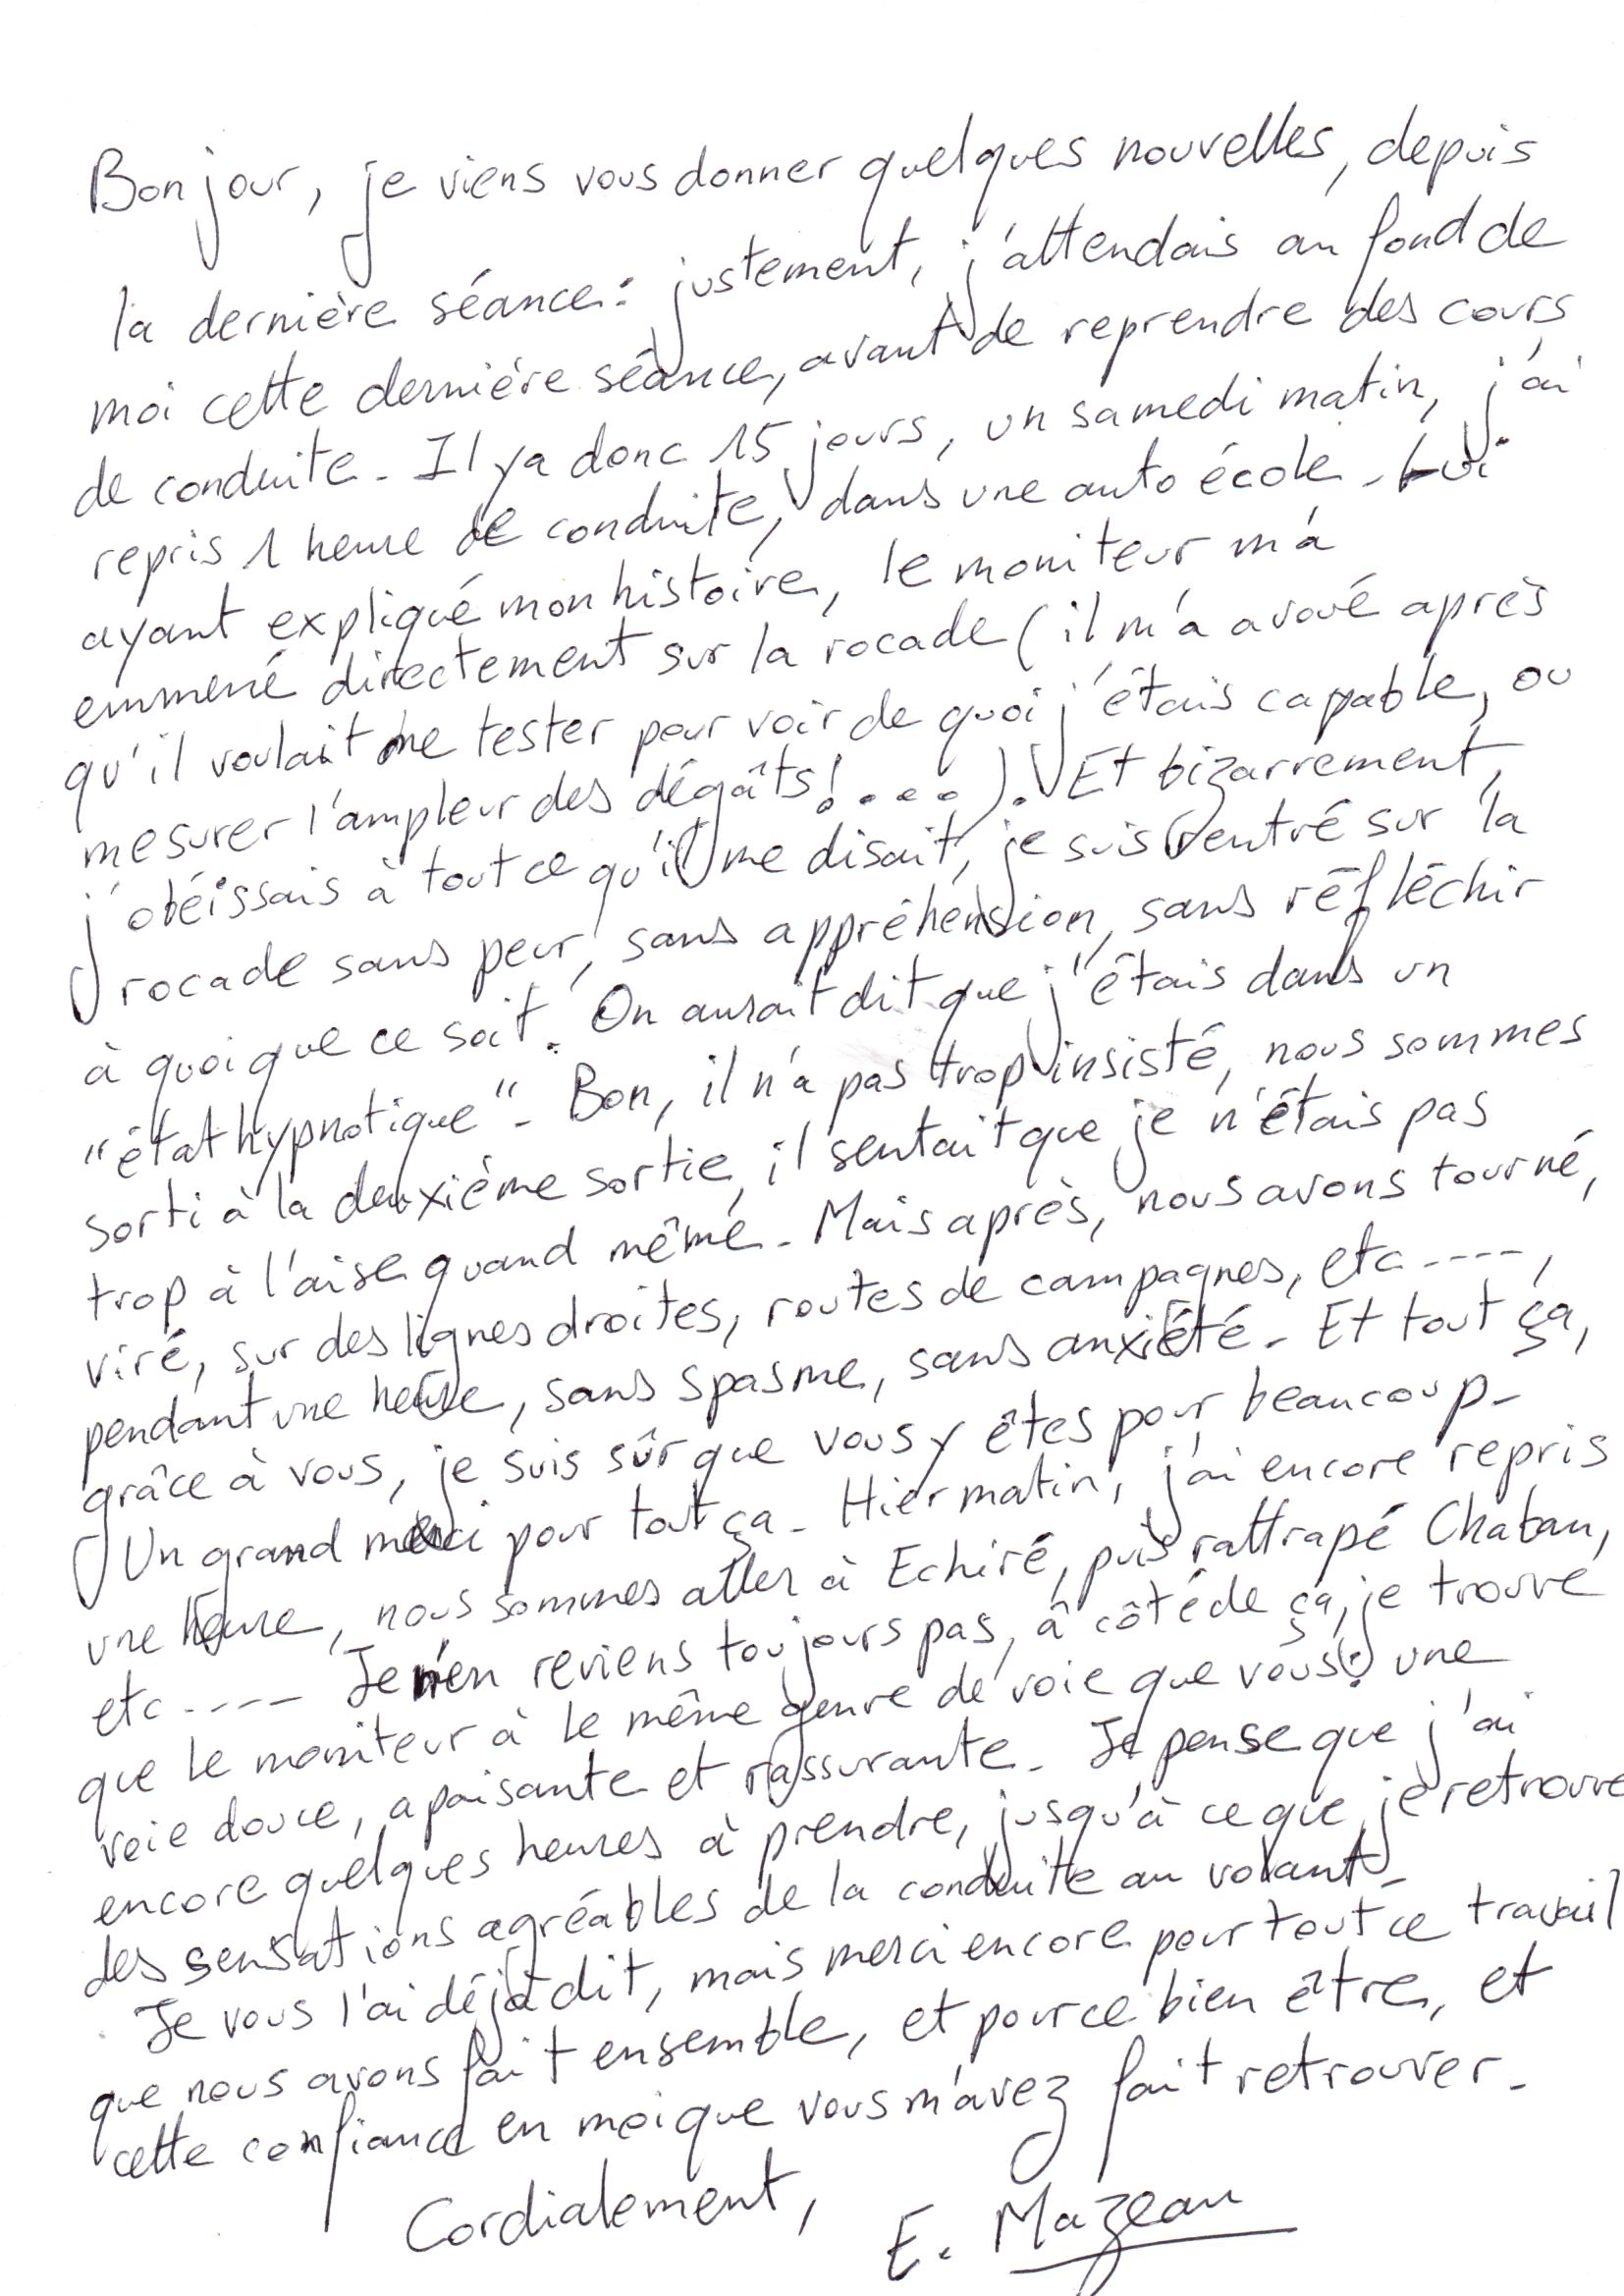 Bonjour, je viens vous donner quelques nouvelles, depuis
la dernière séance : justement, j'attendais au fond de
moi cette dernière séance, avant de reprendre des cours
de conduite. Il y a donc 15 jours, un samedi matin, j'ai
repris 1 heure de conduite, dans une auto école. Lui
ayant expliqué mon histoire, le moniteur m'a
emmené directement sur la rocade (il m'a avoué après
qu'il voulait me tester pour voir de quoi j'étais capable, ou
mesurer l'ampleur des dégâts!....). Et bizarrement,
j'obéissais à tout ce qu'il me disait, je suis rentré sur la
rocade sans peur, sans appréhension, sans réfléchir
à quoique ce soit. On aurait dit que j'étais dans un
"état hypnotique". Bon, il n'a pas trop insisté, nous sommes
sorti à la deuxième sortie, il sentait que je n'étais pas
trop à l'aise quand même. Mais après, nous avons tourné,
viré, sur des lignes droites, routes de campagnes, etc ----,
pendant une heure, sans spasme, sans anxiété. Et tout ça,
grâce à vous, je suis sûr que vous y êtes pour beaucoup.
Un grand merci pour tout ça. Hier matin, j'ai encore repris
une heure, nous sommes aller à Echiré, puis rattrapé Chaban,
etc ---- Je n'en reviens toujours pas, à côté de ça, je trouve
que le moniteur à le même genre de voie que vous : une
voie douce, apaisante et rassurante. Je pense que j'ai
encore quelques heures à prendre, jusqu'à ce que je retrouve
des sensations agréables de la conduite au volant.
Je vous l'ai déjà dit, mais merci encore pour tout ce travail
que nous avons fait ensemble, et pour ce bien être, et
cette confiance en moi que vous m'avez fait retrouver.
Cordialement,
E. Mazeau